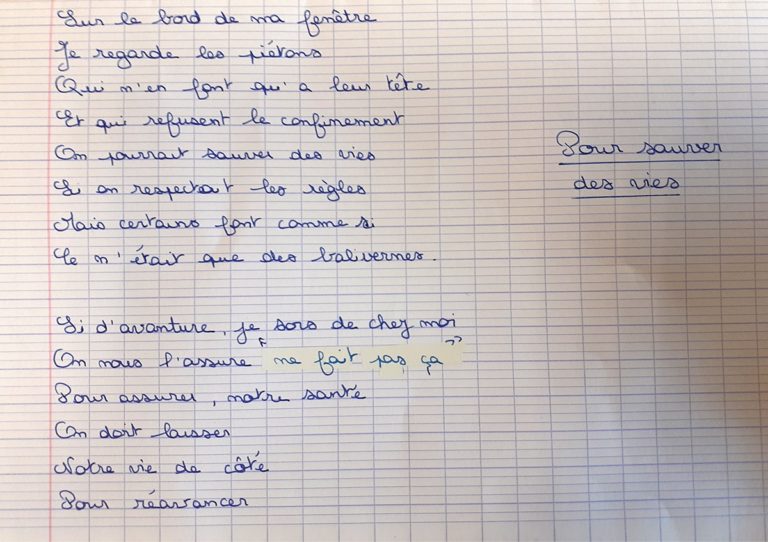 Sur le bord de ma fenêtre
Je regarde les piétons
Qui n'en font qu'a leur tête
Et qui refusent le confinement
On pourrait sauver des vies
Si on respectait les règles
Mais certains font comme si
Ce n'était que des balivernes.
Si d'avanture, je sors de chez moi
On nous l'assure "ne fait pas ça"
Pour assurer, notre santé
On doit laisser
Notre vie de côté
Pour réavancer
Pour sauver
des vies